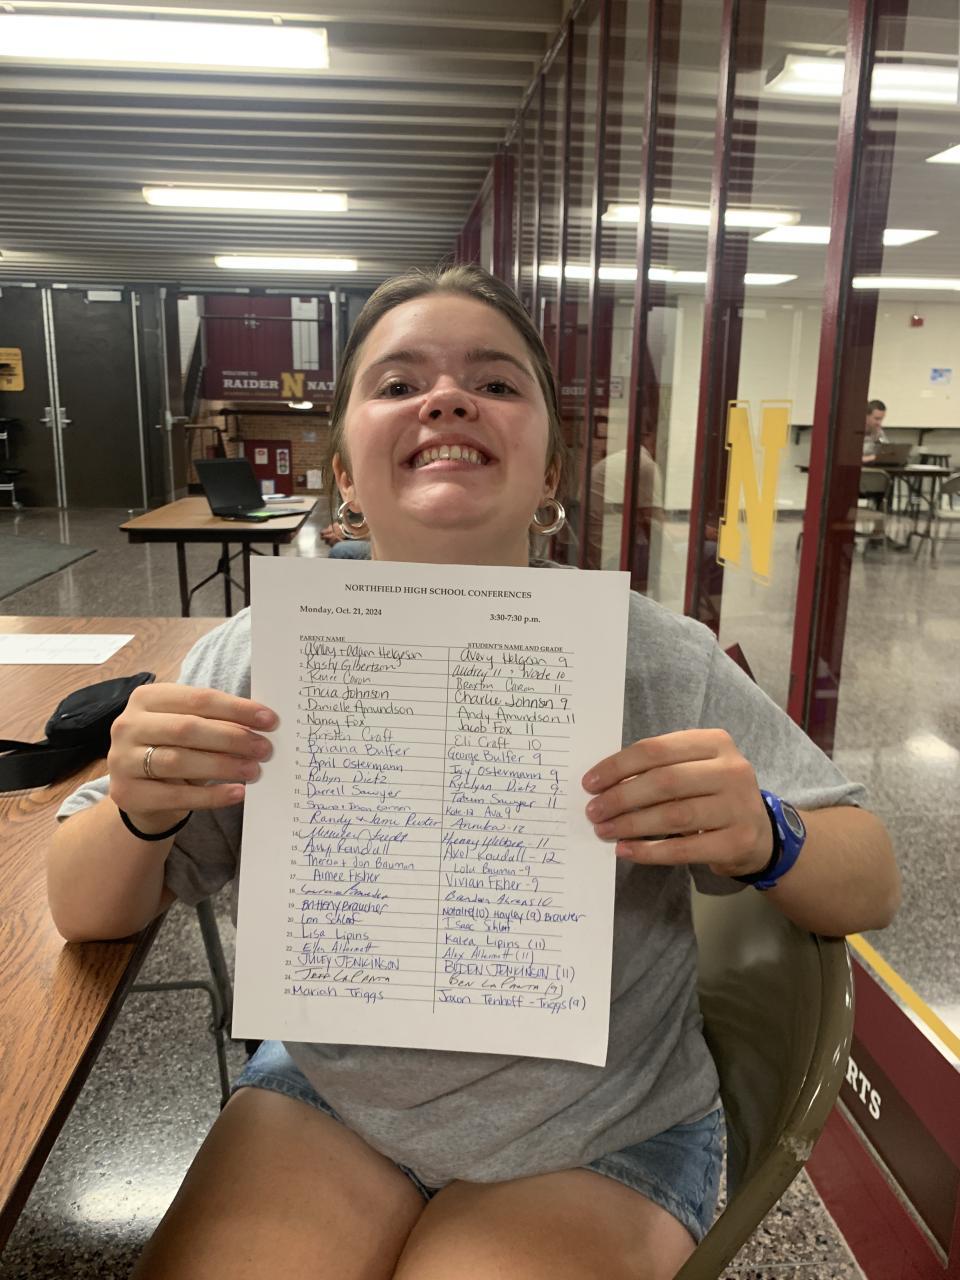 WELCOME TO
RAIDER N NAT
N
NORTHFIELD HIGH SCHOOL CONFERENCES
Monday, Oct. 21, 2024 3:30-7:30 p.m.
PARENT NAME STUDENT'S NAME AND GRADE
1. Ashley + Adam Helgeson Avery Helgeson 9
2. Kristy Gilbertson Audrey 11, Wade 10
3. Renee Caron Braxton Caron 11
4. Tricia Johnson Charlie Johnson 9
5. Danielle Amundson Andy Amundson 11
6. Nancy Fox Jacob Fox 11
7. Kristin Craft Eli Craft 10
8. Briana Bulfer George Bulfer 9
9. April Ostermann Ivy Ostermann 9
10. Robyn Dietz Ryelynn Dietz 9.
11. Darrell Sawyer Tatum Sawyer 11
12. Kate-12 Ava 9
13. Randy + Jamie Reuter Annika-12
14. Henry - 11
15. Amy Randall Axel Randall - 12
16. Theresa + Jon Bauman Lola Bauman - 9
17. Aimee Fisher Vivian Fisher - 9
18. Brandon Ahrens 10
19. Brittany Braucher Natalie (10) Hayley (9) Braucher
20. Lori Schlaf Isaac Schlaf
21. Lisa Lipins Kalea Lipins (11)
22. Ellen Alex (11)
23. JULEY JENKINSON JENKINSON (11)
24. JEFF LAPANTA BEN LAPANTA (9)
25. Mariah Triggs Jaxon Tenhoff - Triggs (9)
RTS